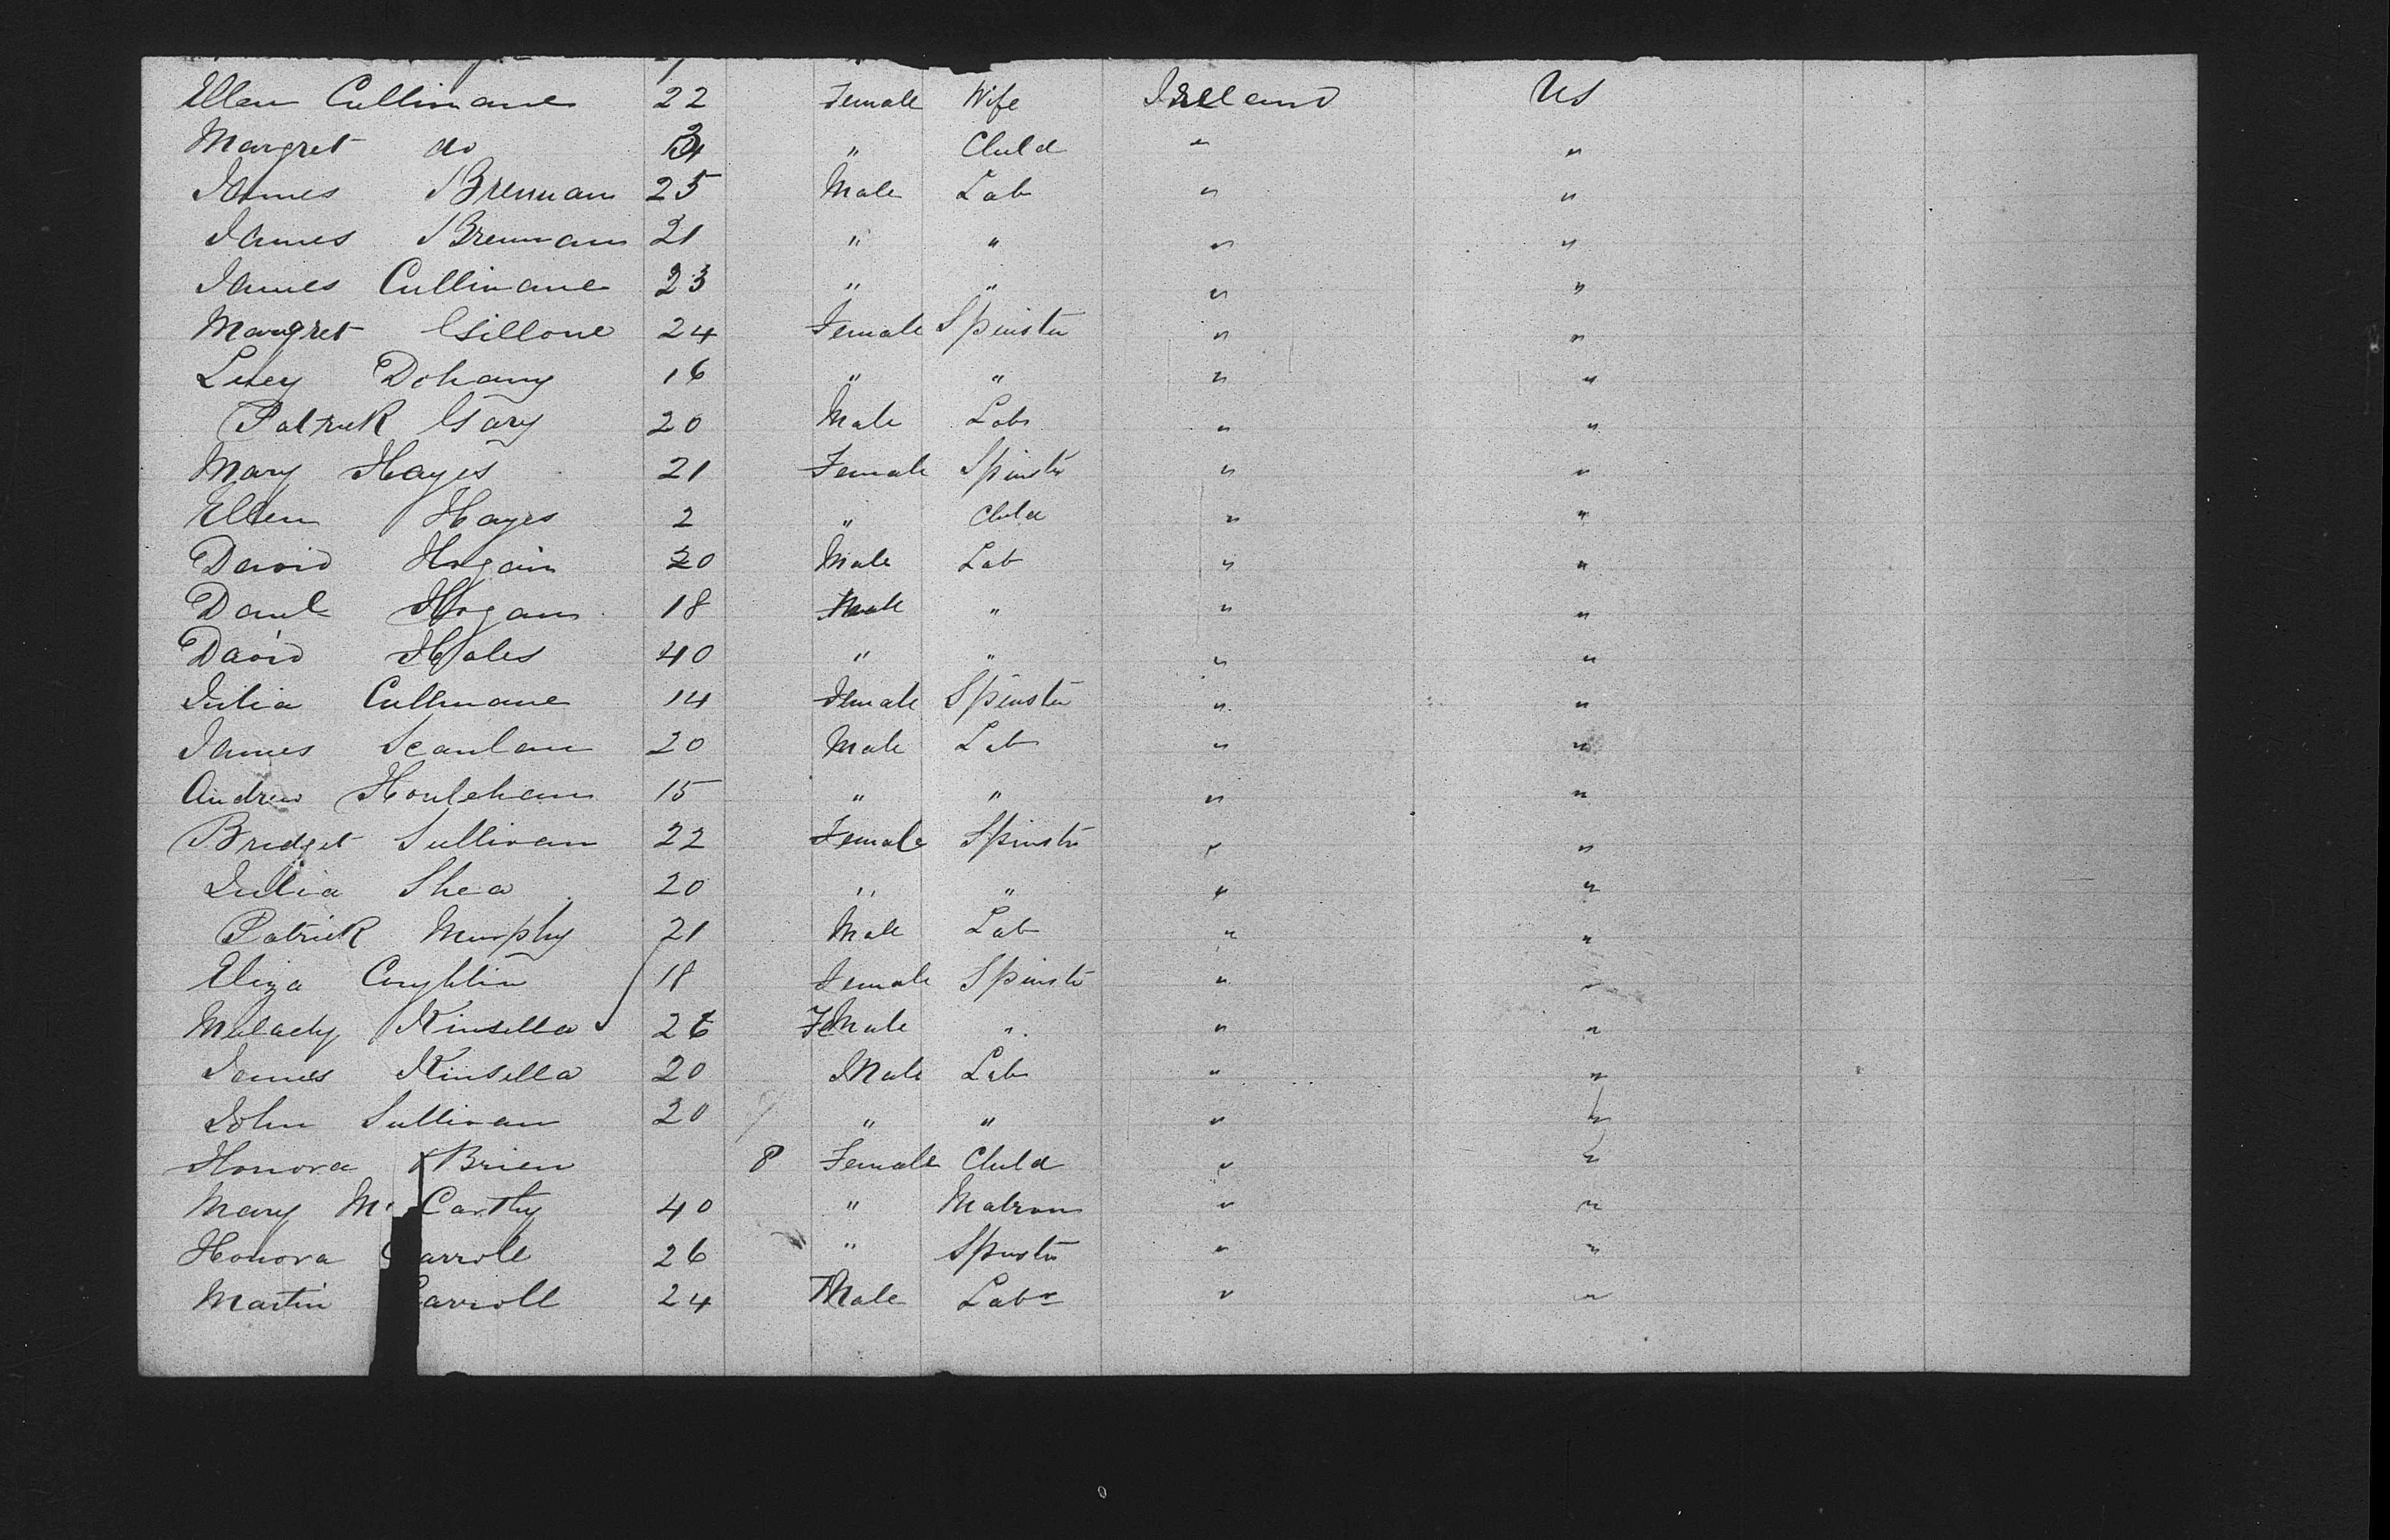 Ellen Cullinane 22 Female Wife Ireland US
Margret do " Child " "
James Brennan 25 Male Lab " "
James Brennan 21 " " " "
James Cullinane 23 " " " "
Margret Gillone 24 Female Spinster " "
Lucy Dohany 16 " " " "
Patrick Gary 20 Male Labr " "
Mary Hayes 21 Female Spinstr " "
Ellen Hayes 2 " Child " "
David Hogan 20 Male Lab " "
Danl Hogan 18 Male " " "
David Hales 40 " " " "
Julia Cullinane 14 Female Spinster " "
James Scanlan 20 Male Lab " "
Andrew Houlehan 15 " " " "
Bridget Sullivan 22 Female Spinstr " "
Julia Shea 20 " " " "
Patrick Murphy 21 Male Lab " "
Eliza Coughlin 18 Female Spinstr " "
Melachy Kinsella 26 Female " " "
James Kinsella 20 Male Lab " "
John Sullivan 20 " " " "
Honora OBrien 8 Female Child " "
Mary Mc Carthy 40 " Matron " "
Honora Carroll 26 " Spinster " "
Martin Carroll 24 Male Labr " "